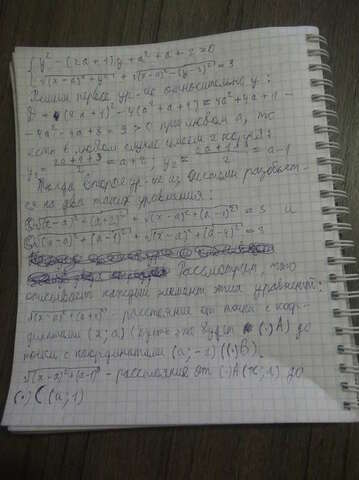 { y² - (2a+1)y + a² + a - 2 = 0
√(x-a)² + y² + √(x-a)² + (y-3)² = 3
Решим первое ур-ие относительно y:
4a² + 4a + 1 -
- 4a² - 4a + 8 = 9 > 0 при любом a, то
есть в любом случае имеем 2 корня:
y₁ = = a+2; y₂ = = a-1
Тогда второе ур-ие из системы разобьёт-
ся на два таких уравнения:
1) √(x-a)² + (a+2)² + √(x-a)² + (a-1)² = 3 и
2) √(x-a)² + (a-1)² + √(x-a)² + (a-4)² = 3
Рассмотрим, что
описывает каждый элемент этих уравнений:
√(x-a)² + (a+2)² - расстояние от точки с коор-
динатами (x; a) (пусть это будет (·) A) до
точки с координатами (a; -2) ((·) B)
√(x-a)² + (a-1)² - расстояние от (·) A до
(·) C (a; 1)